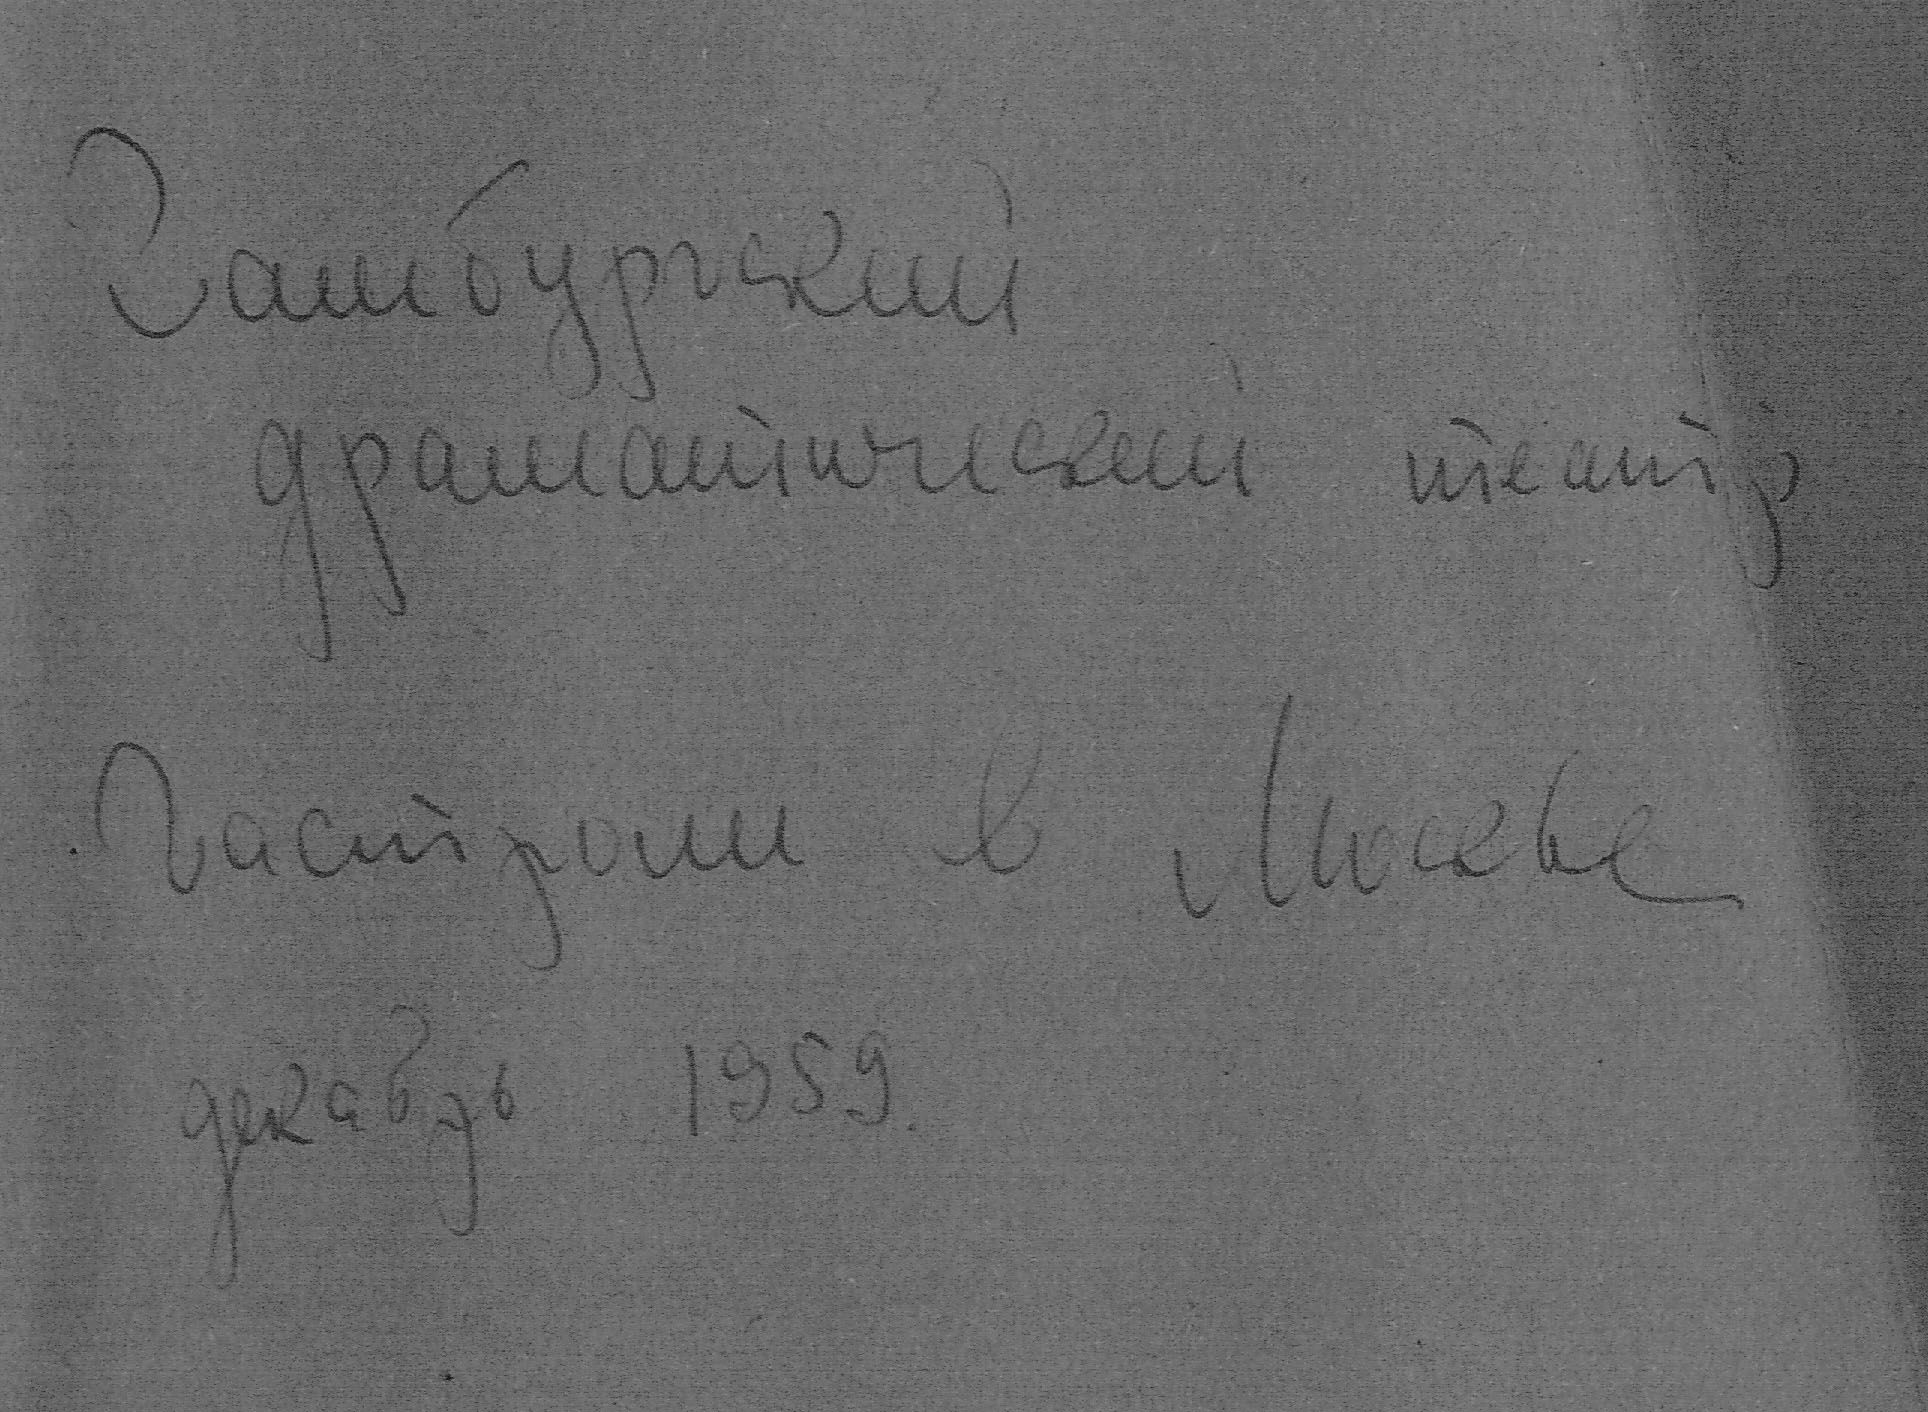 Гамбургский
драматический театр
Гастроли в Москве
декабрь 1959.